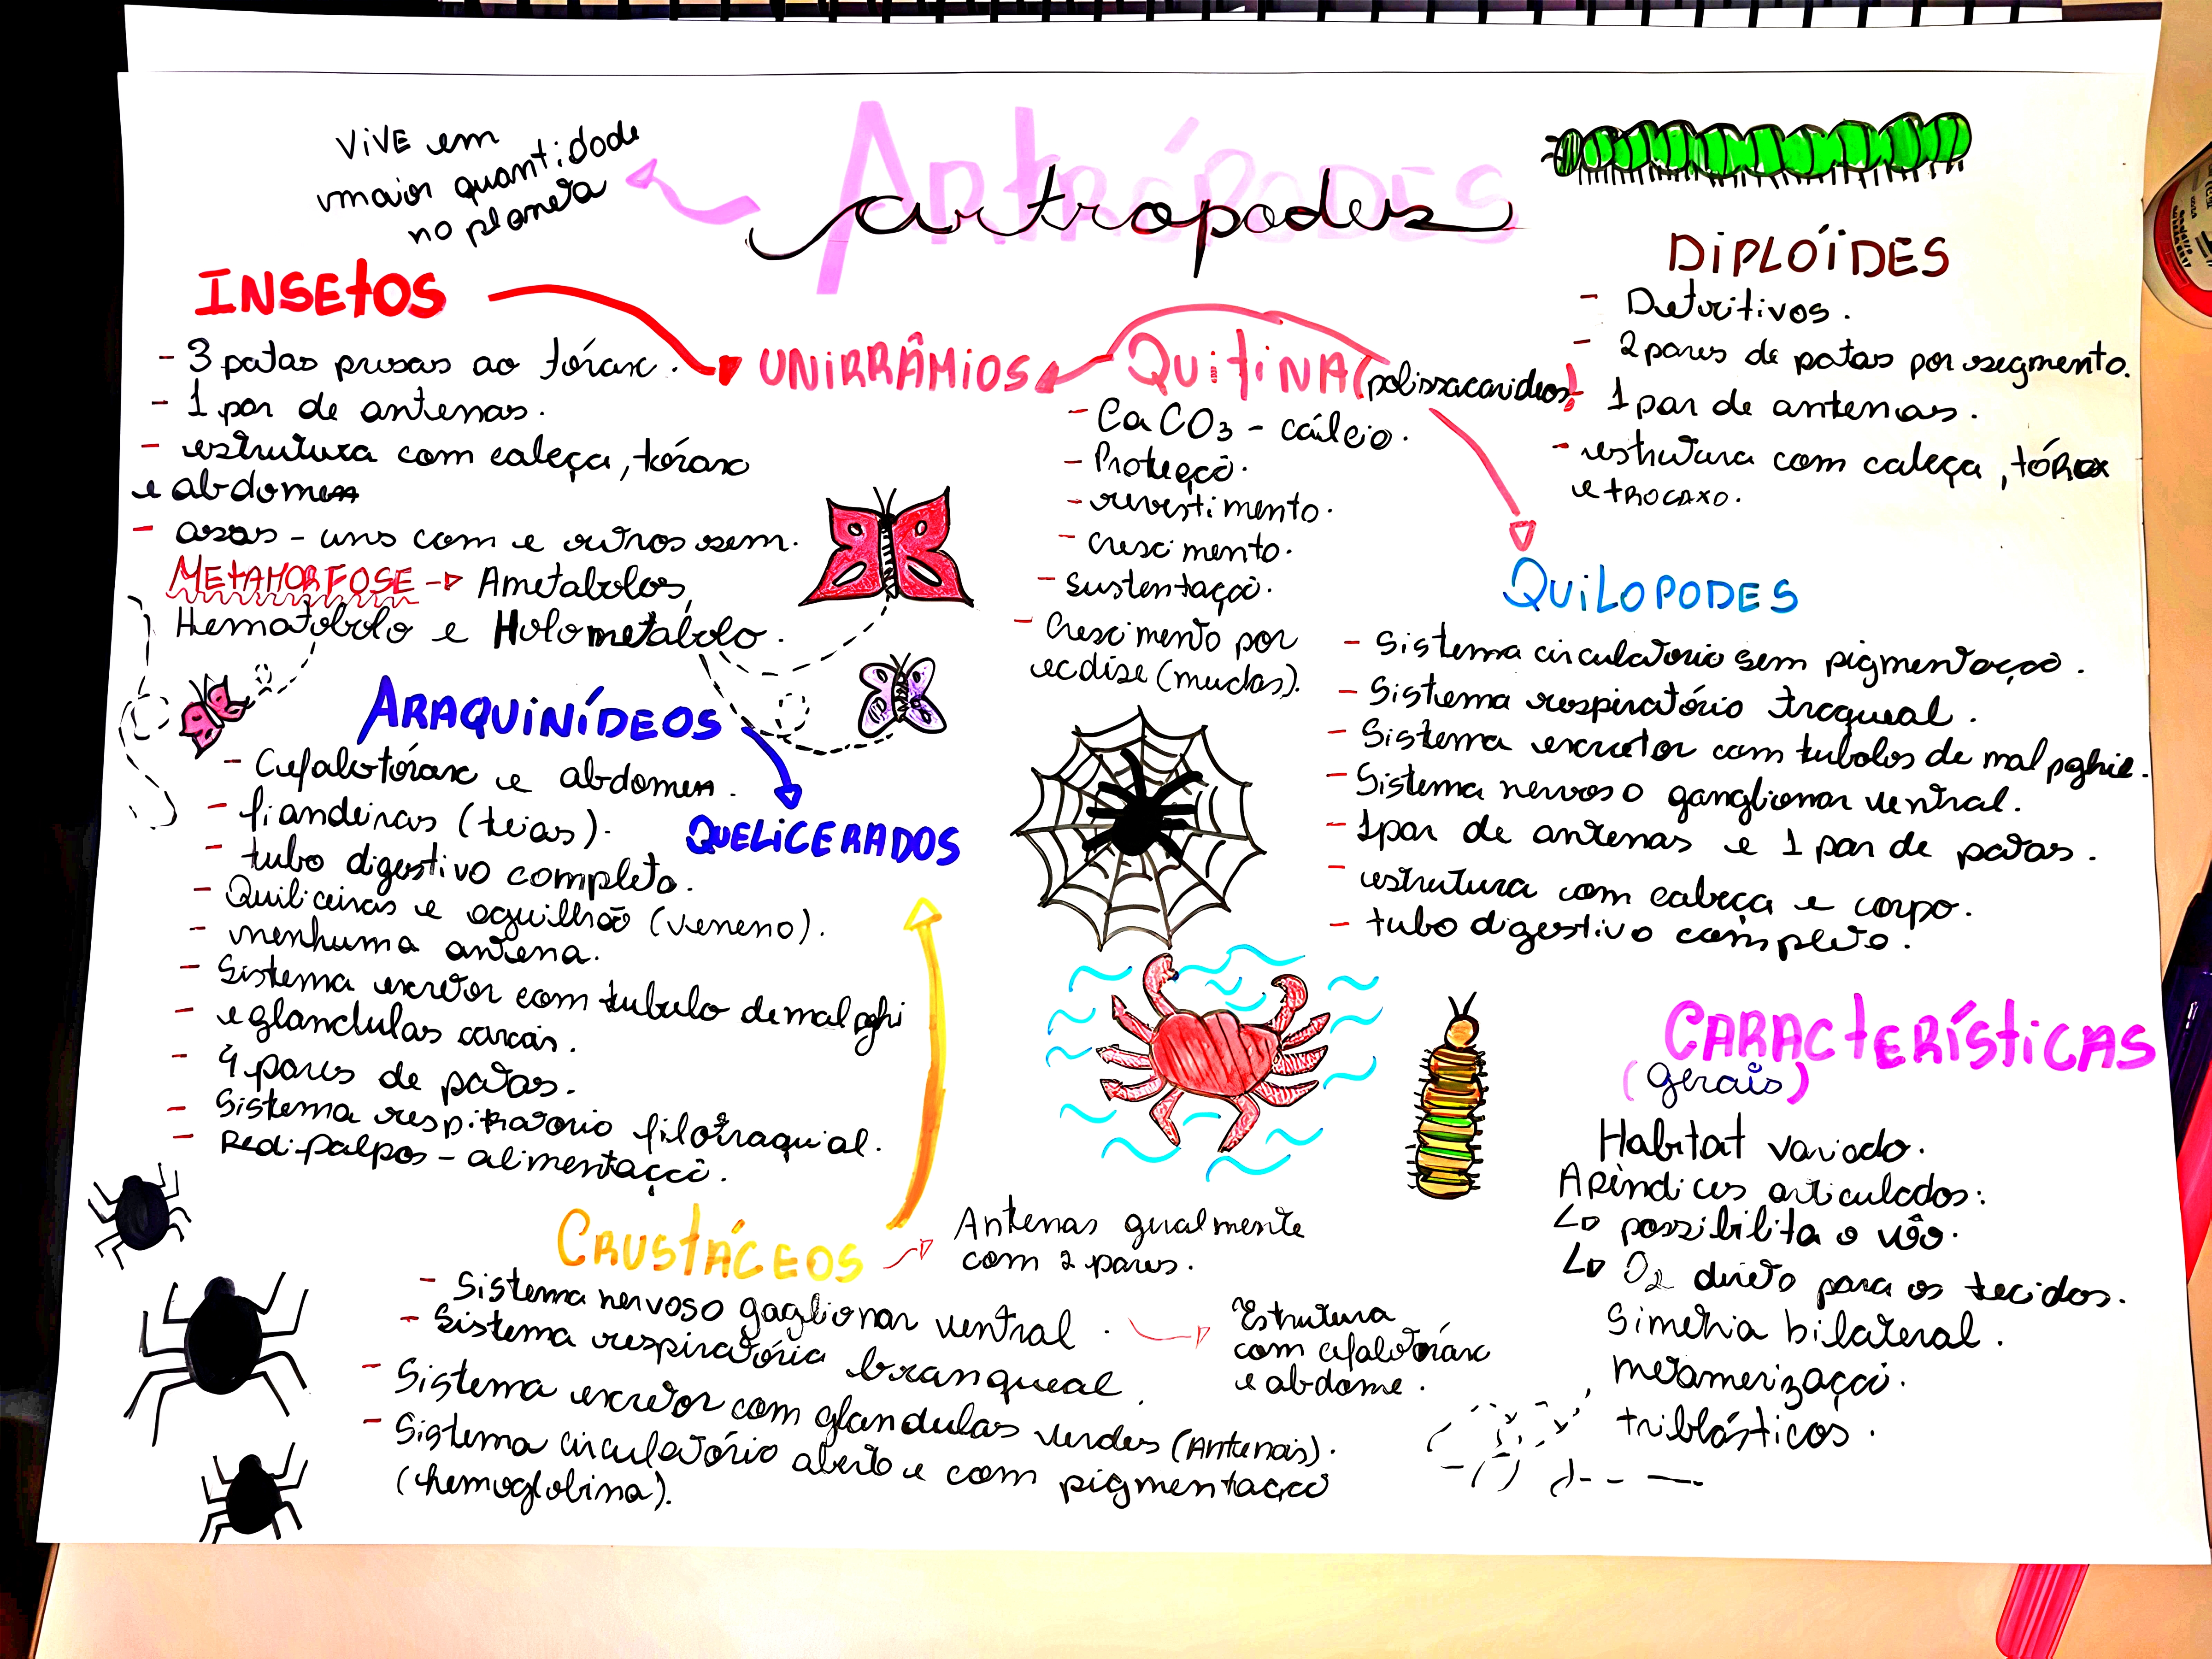 Artrópodes
artropodes
ViVE em
maior quantidade
no planeta
INSEtOS
- 3 patas presas ao tórax.
- 1 par de antenas.
- estrutura com cabeça, tórax
e abdomen
- asas - uns com e outros sem.
METAMORFOSE -> Ametabolos,
Hematobolo e Holometabolo.
UNiRRÂMiOS
QUitiNA (polissacarideos)
- CaCO3 - cálcio.
- Proteçcõ.
- revestimento.
- Crescimento.
- Sustentaçcõ.
- Crescimento por
ecdise (mudas).
DiPLÓiDES
- Detritivos.
- 2 pares de patas por segmento.
- 1 par de antenas.
- estrutura com cabeça, tórax
e trocaxo.
QUiLOPODES
- Sistema circulatorio sem pigmentaçcõ.
- Sistema respiratório traqueal.
- Sistema excretor com tubolos de malpghie.
- Sistema nervoso ganglionar ventral.
- 1 par de antenas e 1 par de patas.
- estrutura com cabeça e corpo.
- tubo digestivo completo.
ARAQUiNÍDEOS
- Cefalotórax e abdomen.
- fiandeiras (teias).
- tubo digestivo completo.
- Quiliceiras e aguilhão (veneno).
- nenhuma antena.
- Sistema excretor com tubulo de malpghi
- e glandulas coxais.
- 4 pares de patas.
- Sistema respiratorio filotraquial.
- Pedipalpos - alimentaçcõ.
QUELiCERADOS
CARACtERÍStiCAS
(gerais)
Habitat variado.
Apêndices articulados:
↳ possibilita o vôo.
↳ O2 direto para os tecidos.
Simetria bilateral.
metamerizaçcõ.
triblásticos.
CRUStÁCEOS
Antenas geralmente
com 2 pares.
- Sistema nervoso gaglionar ventral.
- Sistema respiratória branqueal.
- Sistema excretor com glandulas verdes (Antenais).
- Sistema circulatório aberto e com pigmentaçcõ
(hemoglobina).
Estrutura
com cefalotórax
e abdome.